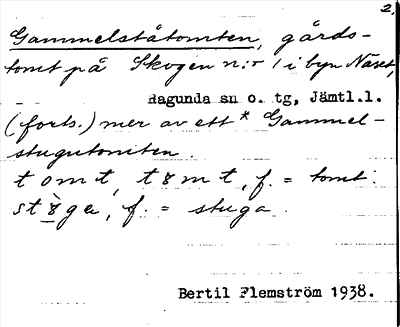 2.
Gammelståtomten, gårds-
tomt på Skogen n:r 1 i byn Näset,
Ragunda sn o. tg, Jämtl.l.
(forts.) mer av ett * Gammel-
stugutomten.
tomt, tȣmt, f. = tomt.
stȣ̀ga, f. = stuga.
Bertil Flemström 1938.